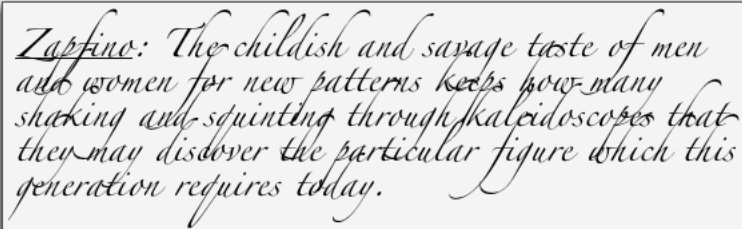 Zapfino: The childish and savage taste of men
and women for new patterns keeps how many
shaking and squinting through kaleidoscopes that
they may discover the particular figure which this
generation requires today.